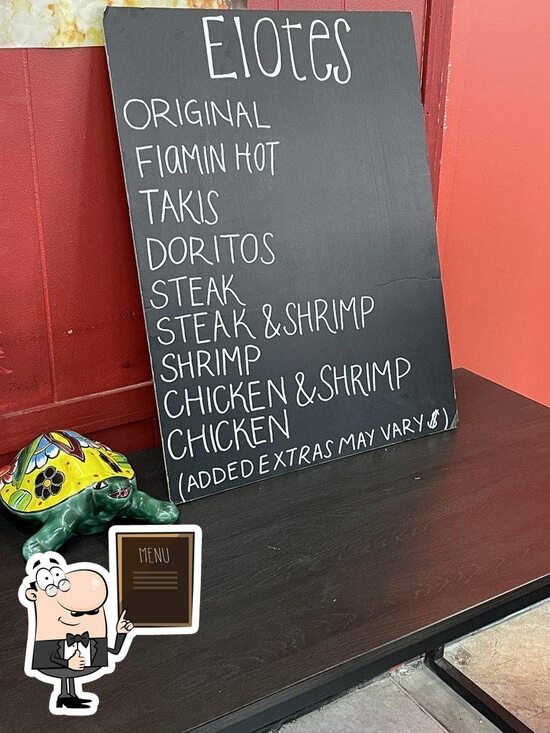 Elotes
ORIGINAL
FlAMIN HOT
TAKIS
DORITOS
STEAK
STEAK & SHRIMP
SHRIMP
CHICKEN & SHRIMP
CHICKEN
(ADDED EXTRAS MAY VARY $)
MENU